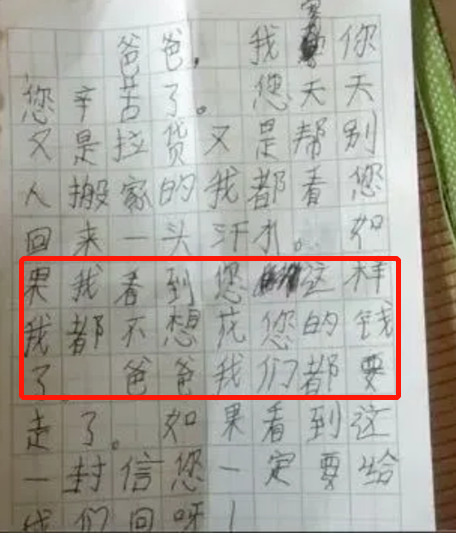 爸爸，我爱你
您辛苦了。您天天
又是拉货又是帮别
人搬家的我都看您
回来一头汗水。如
果我看到您这样
我都不想花您的钱
了。爸爸我们都要
走了。如果看到这
一封信您一定要给
我们回呀！